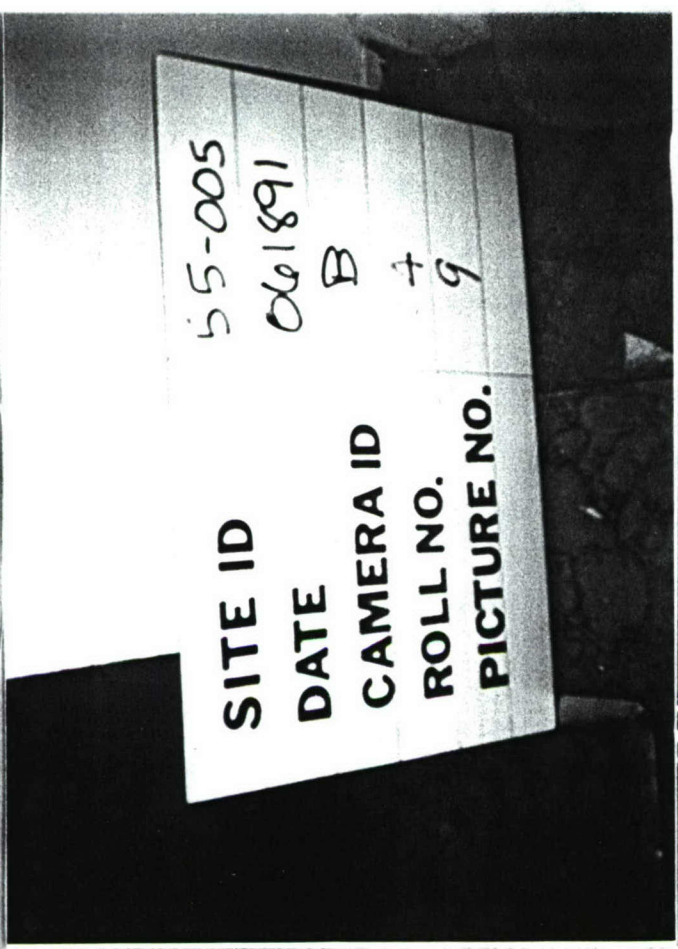 SITE ID 55-005
DATE 061891
CAMERA ID B
ROLL NO.
PICTURE NO. 9